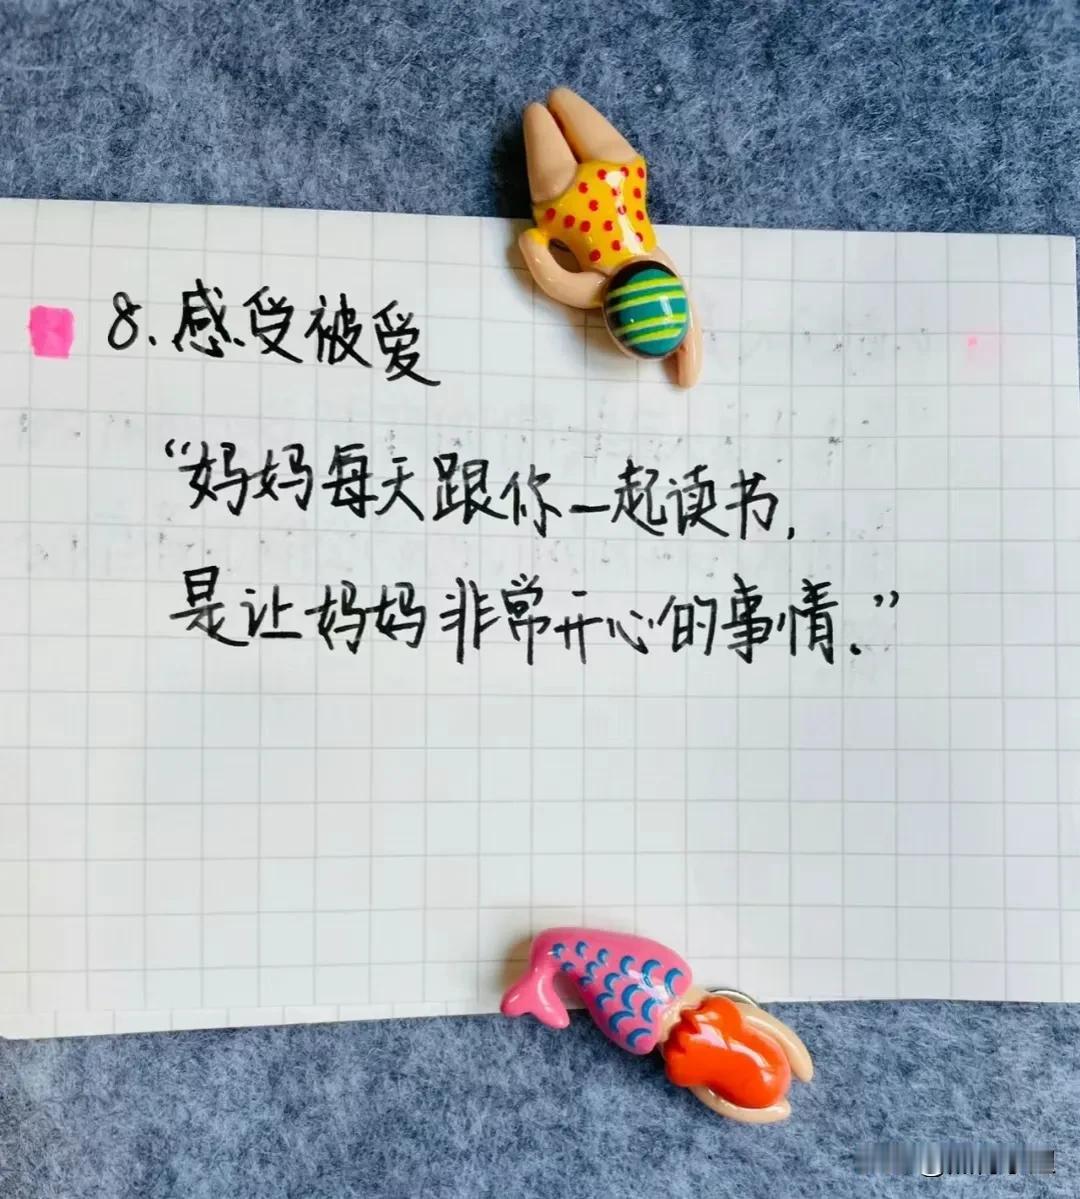 8.感受被爱
“妈妈每天跟你一起读书,
是让妈妈非常开心的事情.”